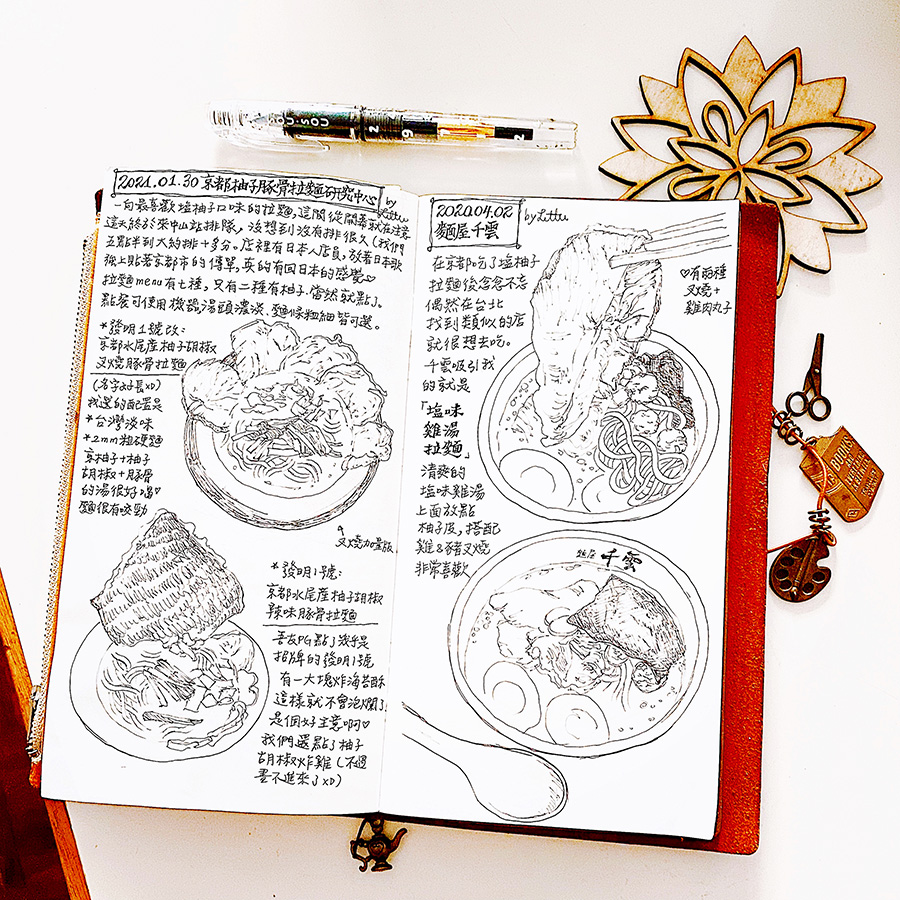 SOU・SOU
2021.01.30 京都柚子豚骨拉麵研究中心
by Lattu
一向最喜歡塩柚子口味的拉麵,這間從開幕就在注意
這天終於來中山站排隊,沒想到沒有排很久(我們
五點半到大約排十多分。店裡有日本人店員,放著日本歌
板上貼著京都市的傳單,真的有回日本的感覺♡
拉麵menu有七種,只有二種有柚子.當然就點了。
點餐可使用機器湯頭濃淡、麵條粗細皆可選。
*發明1號改:
京都水尾產柚子胡椒
叉燒豚骨拉麵
(名字好長XD)
我選的配置是
*台灣淡味
*2mm粗硬麵
京柚子+柚子
胡椒+豚骨
的湯很好喝♡
麵很有咬勁
叉燒加量版
*發明1號:
京都水尾產柚子胡椒
辣味豚骨拉麵
吾友PG點了幾乎是
招牌的發明1號
有一大塊炸海苔酥
這樣就不會泡爛了
是個好主意啊♡
我們還點了柚子
胡椒炸雞(不過
畫不進來了XD)
2020.04.02
麵屋千雲
by Lattu
在京都吃了塩柚子
拉麵後念念不忘
偶然在台北
找到類似的店
就很想去吃。
千雲吸引我
的就是
「塩味
雞湯
拉麵」
清爽的
塩味雞湯
上面放點
柚子皮,搭配
雞&豬叉燒
非常喜歡
♡有兩種
叉燒+
雞肉丸子
麵屋 千雲
BOOKS